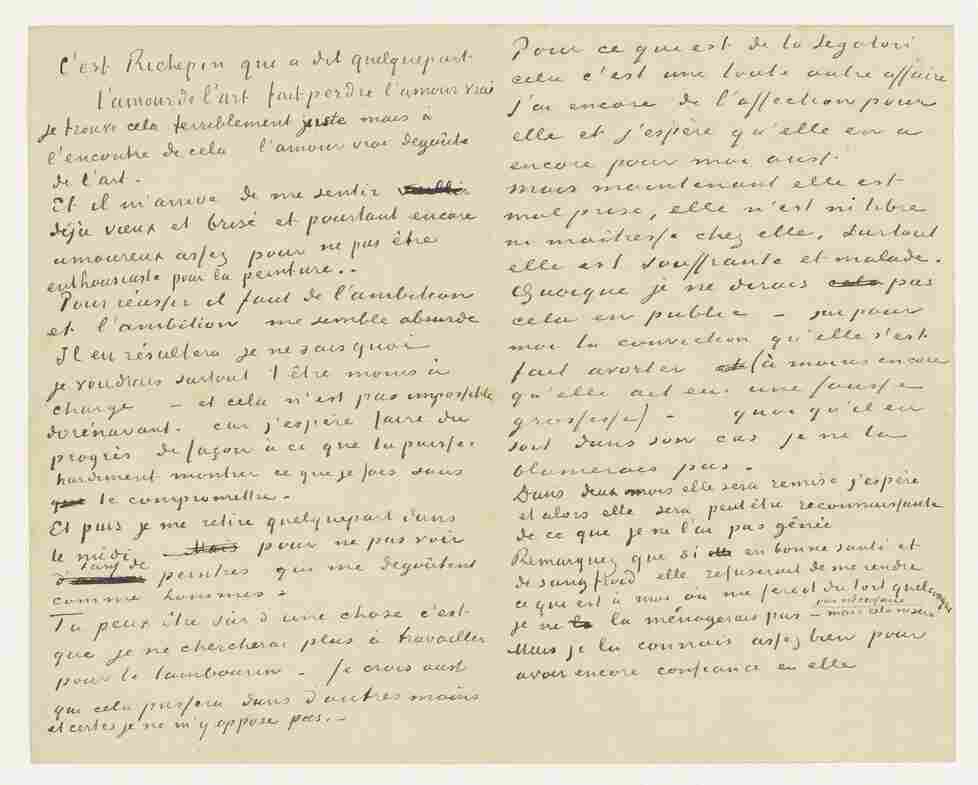 C'est Richepin qui a dit quelquepart
l'amour de l'art fait perdre l'amour vrai
je trouve cela terriblement juste mais à
l'encontre de cela l'amour vrai degoûte
de l'art.
Et il m'arrive de me sentir
déjà vieux et brisé et pourtant encore
amoureux assez pour ne pas être
enthousiaste pour la peinture..
Pour réussir il faut de l'ambition
et l'ambition me semble absurde
Il en résultera je ne sais quoi
je voudrais surtout t'être moins à
charge – et cela n'est pas impossible
dorénavant. car j'espère faire du
progrès de façon à ce que tu puisses
hardiment montrer ce que je fais sans
te compromettre.
Et puis je me retire quelquepart dans
le midi pour ne pas voir
tant de
peintres qui me degoûtent
comme hommes.
Tu peux être sûr d'une chose c'est
que je ne chercherai plus à travailler
pour le tambourin – Je crois aussi
que cela passera dans d'autres mains
et certes je ne m'y oppose pas.–
Pour ce que est de la Segatori
cela c'est une toute autre affaire
j'ai encore de l'affection pour
elle et j'espère qu'elle en a
encore pour moi aussi
Mais maintenant elle est
mal prise, elle n'est ni libre
ni maitresse chez elle, surtout
elle est souffrante et malade.
Quoique je ne dirais pas
cela en public – j'ai pour
moi la conviction qu'elle s'est
fait avorter (à moins encore
qu'elle ait eu une fausse
grossesse) – quoi qu'il en
soit dans son cas je ne la
blamerais pas.
Dans deux mois elle sera remise j'espère
et alors elle sera peutêtre reconnaissante
de ce que je ne l'ai pas gênée
Remarquez que si en bonne santé et
de sang froid elle refuserait de me rendre
ce que est à moi ou me ferait du tort quelconque
je ne la ménagerais pas – mais cela ne sera
pas nécessaire
Mais je la connais assez bien pour
avoir encore confiance en elle